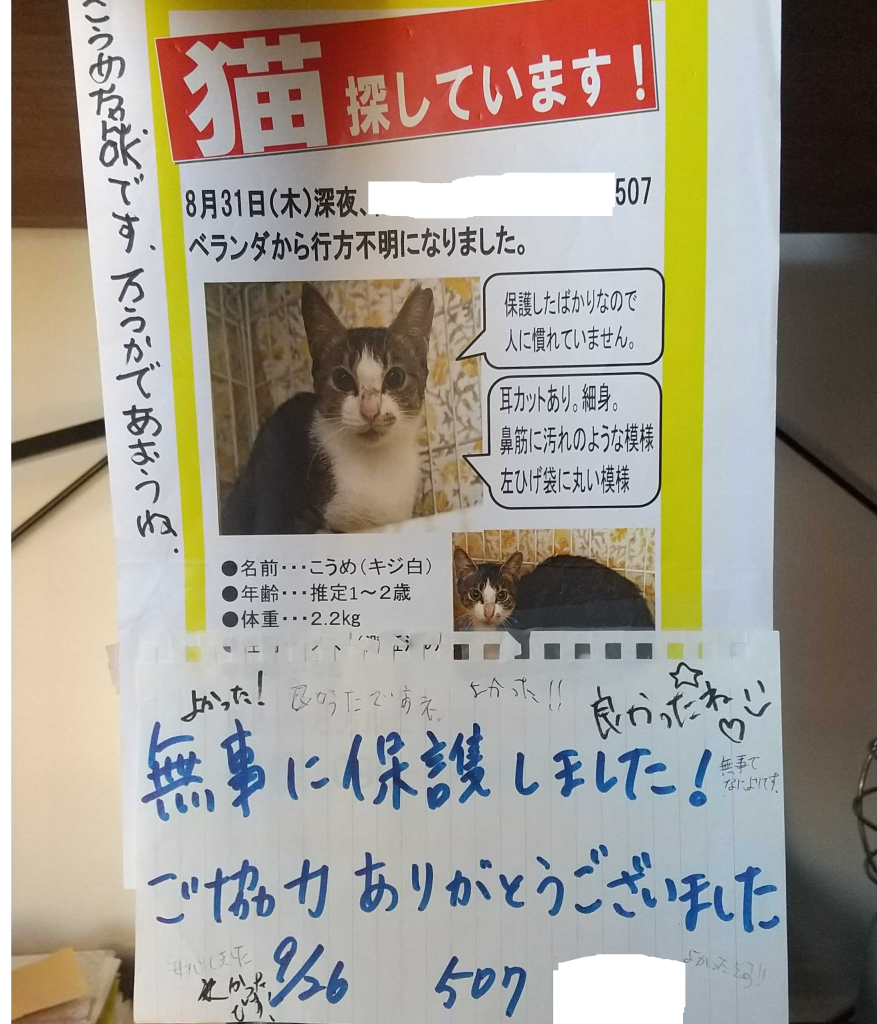 猫 探しています！
8月31日(木)深夜、
507
ベランダから行方不明になりました。
保護したばかりなので
人に慣れていません。
耳カットあり。細身。
鼻筋に汚れのような模様
左ひげ袋に丸い模様
●名前･･･こうめ(キジ白)
●年齢･･･推定1～2歳
●体重･･･2.2kg
です.
であおうね.
よかった!
よかった!!
良かったね
無事に保護しました!
無事で
なによりです.
ご協力ありがとうございました
9/26 507